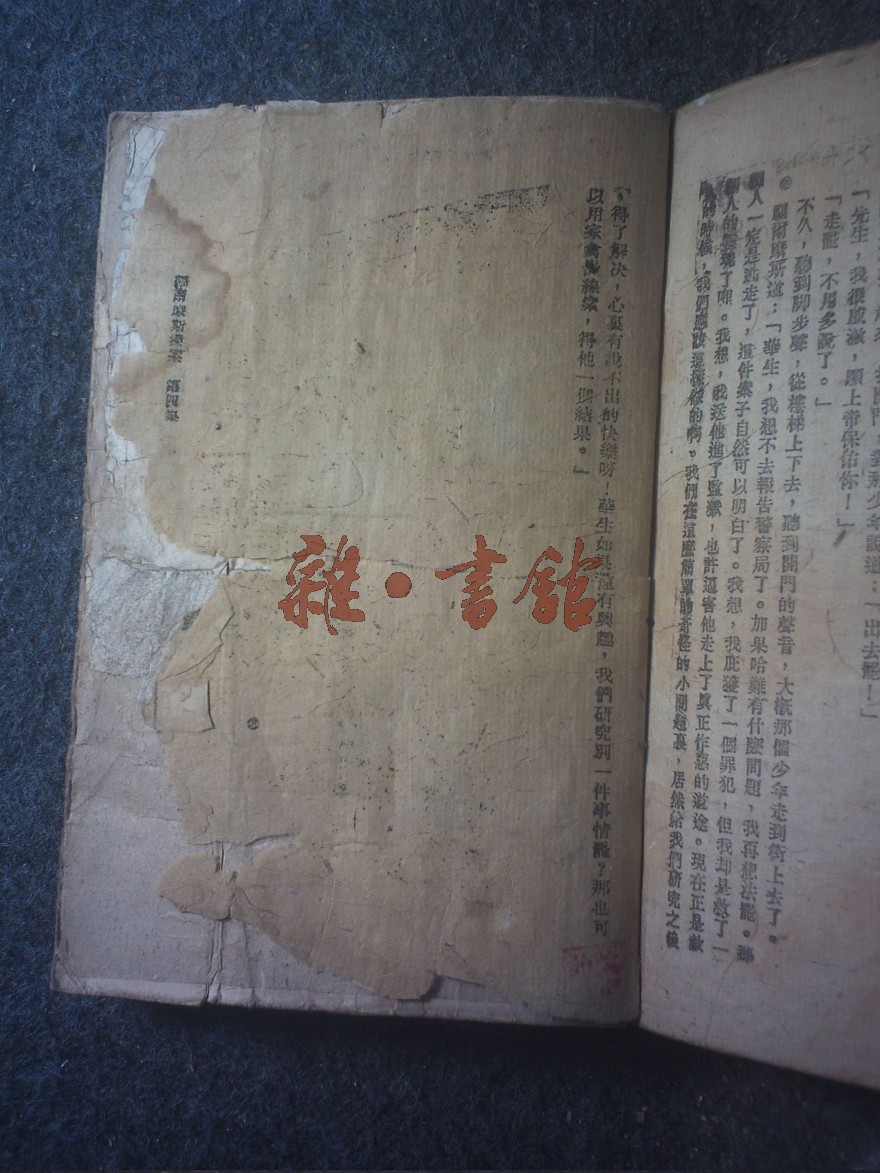 「先生，我很感激，願上帝保佑你！」
「走罷，不用多說了。」
不久，聽到脚步聲，從樓梯上下去，聽到開門的聲音，大概那個少年走到街上去了。
福爾摩斯道：「華生，我想不去報告警察局了。如果哈雖有什麼問題，我再想法罷。那
個人一定是逃走了，這件案子自然可以明白了。我想，我庇護了一個罪犯，但我却是救了一
個人的靈魂了哩。我想，我送他進了監獄，也許逼害他走上了眞正作惡的道途。現在正是赦
的時候，我們應該這樣做的啊。我們在這麼簡單的奇怪的小問題裏，居然給我們研究之後
，得了解決，心裏有說不出的快樂呀！華生如果還有興趣，我們研究別一件事情罷？那也可
以用家禽做線索，得他一個結果。」
福爾摩斯探案 第四集
雜·書館